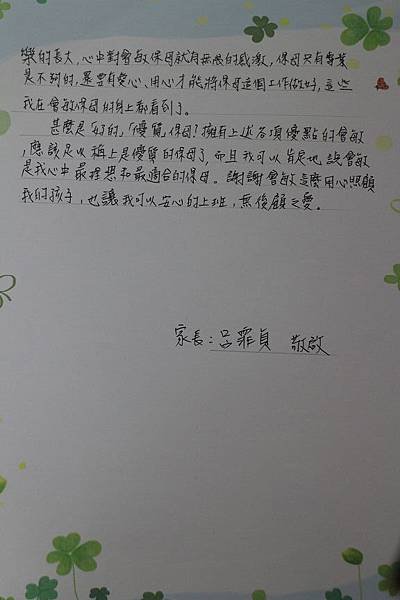 樂的長大，心中對會敏保母就有無限的感激，保母只有專業
是不夠的，還要有愛心、用心才能將保母這個工作做好，這些
我在會敏保母的身上都看到了。
甚麼是「好的」「優質」保母？擁有上述各項優點的會敏
，應該足以稱上是優質的保母了，而且我可以肯定地說會敏
是我心中最理想和最適合的保母。謝謝會敏這麼用心照顧
我的孩子，也讓我可以安心的上班，無後顧之憂。
家長：呂霏貞 敬啟